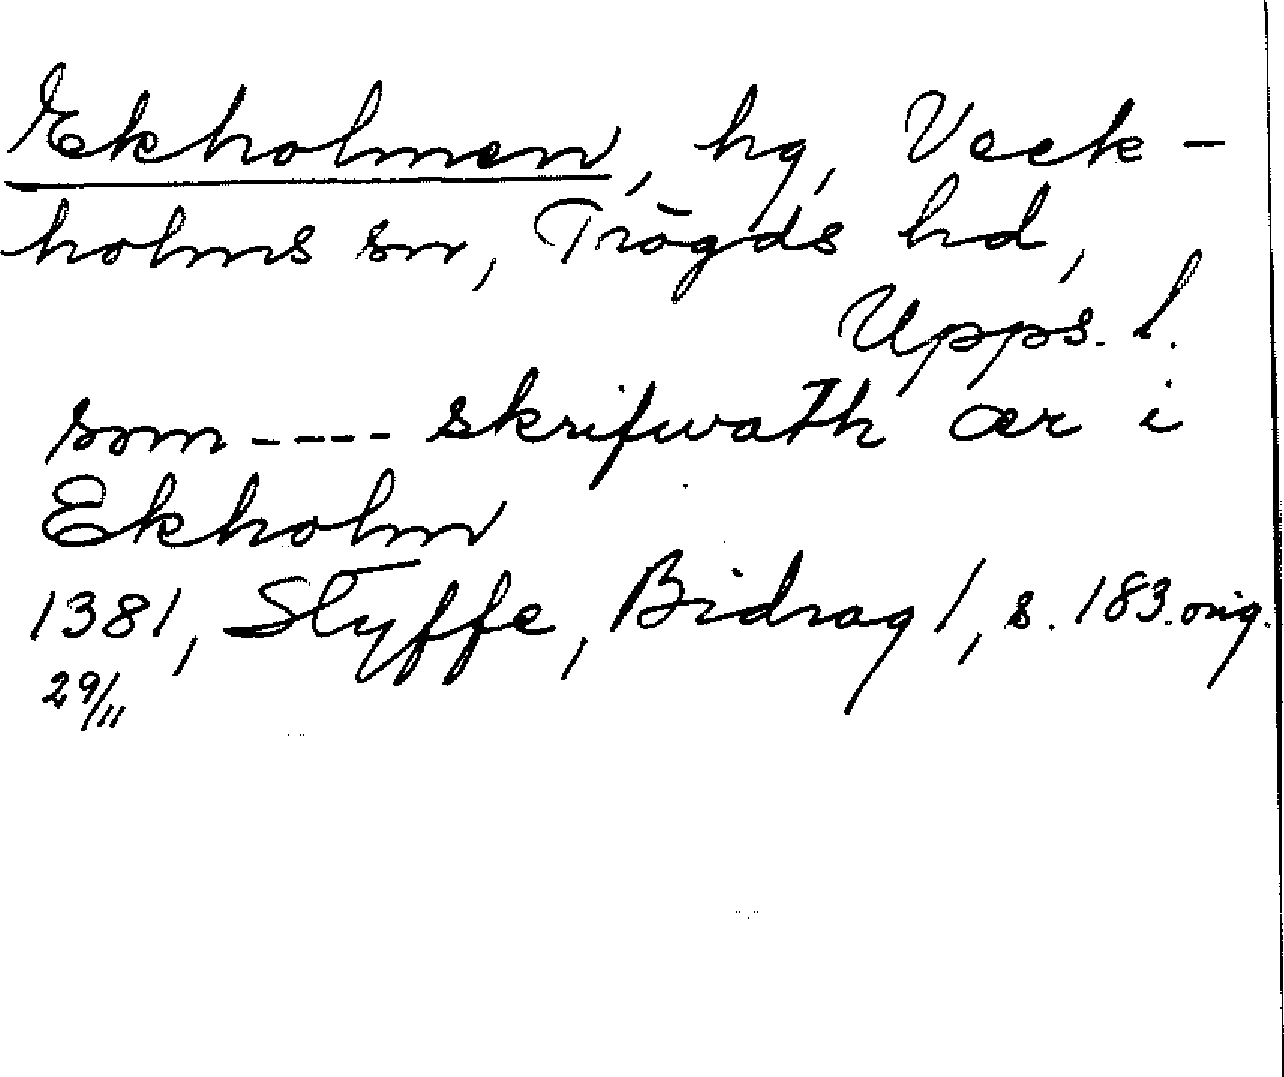 Ekholmen, hg, Veck-
holms sn, Trögds hd,
Upps. l.
som---- skrifwath ær i
Ekholm
1381, Styffe, Bidrag 1, s. 183. orig.
29/11